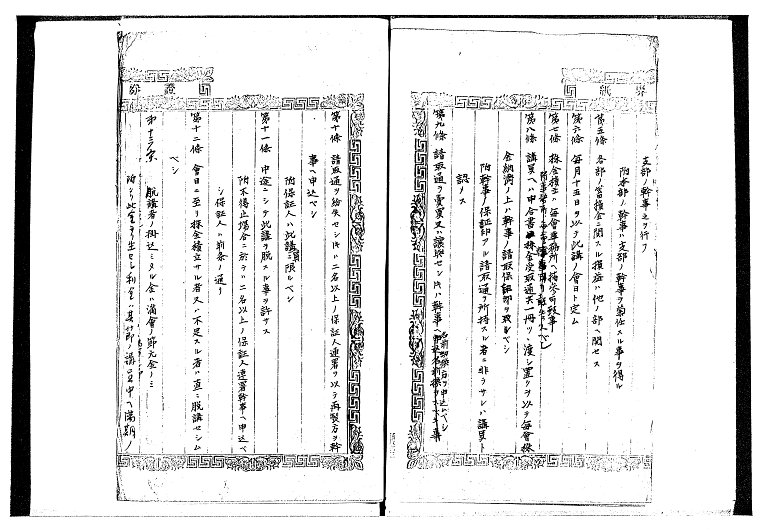 券紙
支部ノ幹事之ヲ行フ
附本部ノ幹事ハ支部ノ幹事ヲ兼任スル事ヲ得ル
第五條 各部ノ當積金ニ関スル損益ハ他ノ部ヘ関セス
第六條 毎月十五日ヲ以テ此講ノ會日ト定ム
第七條 掛金積立ハ毎會事務所ヘ持参可致事
第八條 講員ヘハ申合書掛金受取通共一冊ツヽ渡シ置クヲ以テ毎會掛
金納済ノ上ハ幹事ノ請取保証印ヲ取ルベシ
附幹事ノ保証印アル請取通ヲ所持スル者ニ非ラサレハ講員ト
認メス
第九條 請取通ヲ賣買又ハ譲與セント 幹事ヘ
證券
第十條 請取通ヲ紛失セシ ハ二名以上ノ保証人連署ヲ以テ再製方ヲ幹
事ヘ申込ベシ
附保証人ハ此講員ニ限ルベシ
第十一條 中途ニシテ此講ヲ脱スル事ヲ許サス
附不得止場合ニ於テハ二名以上ノ保証人連署幹事ヘ申込ベ
シ保証人ハ前条ノ通リ
第十二條 會日ニ至リ掛金積立サル者又ハ不足スル者ハ直ニ脱講セシム
ベシ
第十三条 脱講者ノ掛込ミタル金ハ満會ノ節元金ノミ
附シ此金ヨリ生セシ利金ハ其部ノ講員中ヘ満期ノ